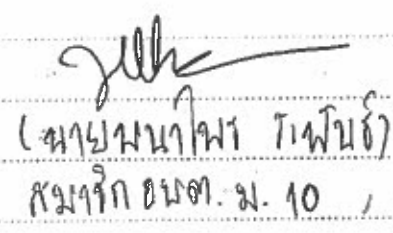 (นายพนาไพร ระพันธ์)
สมาชิก อบต. ม. 10